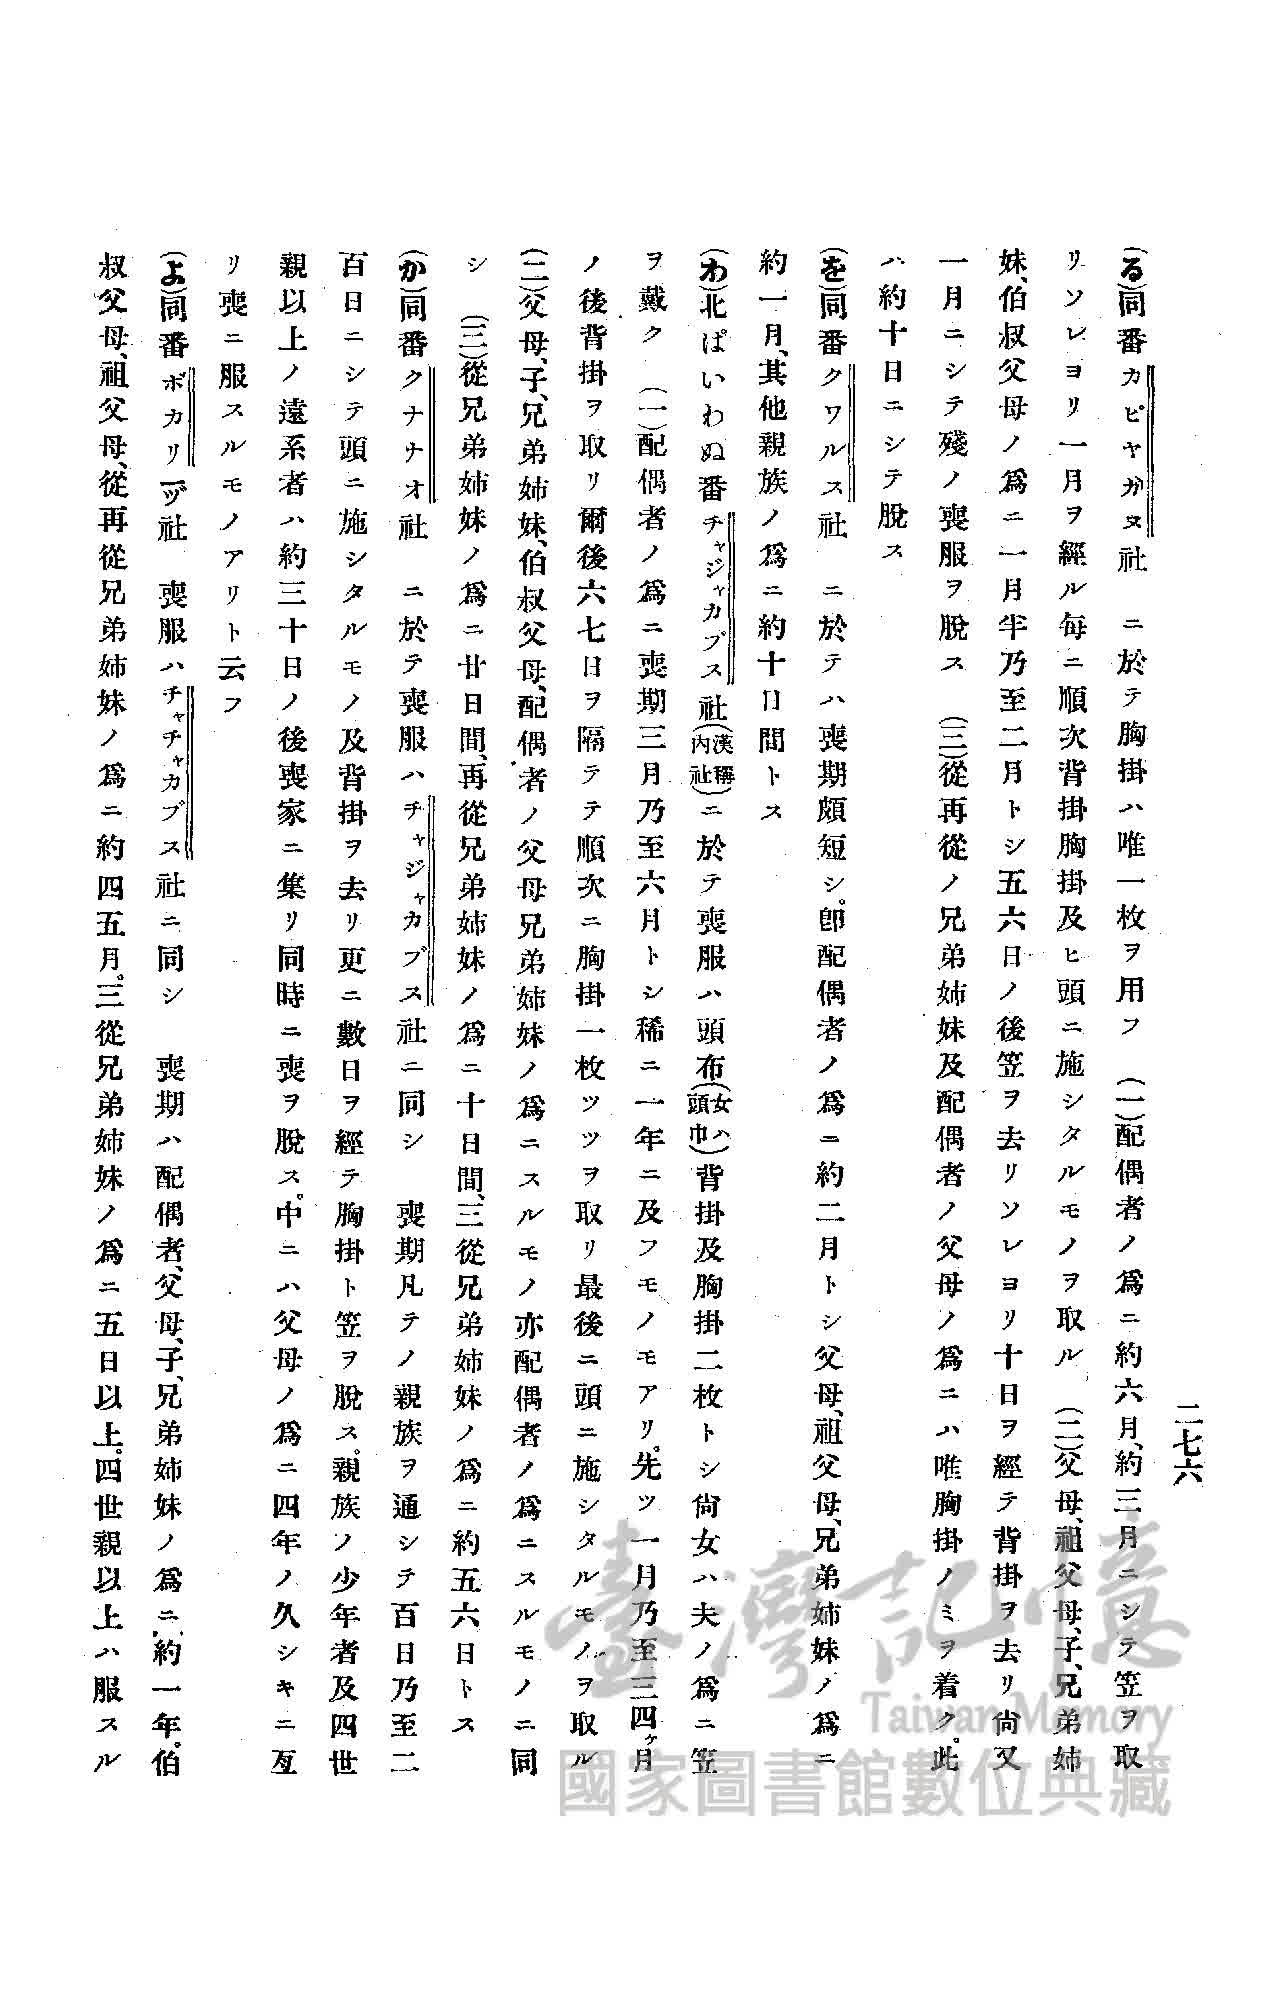 二七六
(る)同番カピヤガヌ社　ニ於テ胸掛ハ唯一枚ヲ用フ　(一)配偶者ノ爲ニ約六月、約三月ニシテ笠ヲ取
リソレヨリ一月ヲ經ル每ニ順次背掛胸掛及ヒ頭ニ施シタルモノヲ取ル　(二)父母、祖父母、子、兄弟姉
妹、伯叔父母ノ爲ニ一月半乃至二月トシ五六日ノ後笠ヲ去リソレヨリ十日ヲ經テ背掛ヲ去リ尙又
一月ニシテ殘ノ喪服ヲ脫ス　(三)從再從ノ兄弟姉妹及配偶者ノ父母ノ爲ニハ唯胸掛ノミヲ着ク。此
ハ約十日ニシテ脫ス
(を)同番クワルス社　ニ於テハ喪期頗短シ。卽配偶者ノ爲ニ約二月トシ父母、祖父母、兄弟姉妹ノ爲ニ
約一月、其他親族ノ爲ニ約十日間トス
(わ)北ぱいわぬ番チャジャカブス社(漢稱內社)ニ於テ喪服ハ頭布(女ハ頭巾)背掛及胸掛二枚トシ尙女ハ夫ノ爲ニ笠
ヲ戴ク　(一)配偶者ノ爲ニ喪期三月乃至六月トシ稀ニ一年ニ及フモノモアリ。先ツ一月乃至三四ヶ月
ノ後背掛ヲ取リ爾後六七日ヲ隔テテ順次ニ胸掛一枚ツツヲ取リ最後ニ頭ニ施シタルモノヲ取ル
(二)父母、子、兄弟姉妹、伯叔父母、配偶者ノ父母兄弟姉妹ノ爲ニスルモノ亦配偶者ノ爲ニスルモノニ同
シ　(三)從兄弟姉妹ノ爲ニ廿日間、再從兄弟姉妹ノ爲ニ十日間、三從兄弟姉妹ノ爲ニ約五六日トス
(か)同番クナナオ社　ニ於テ喪服ハチャジャカブス社ニ同シ　喪期凡テノ親族ヲ通シテ百日乃至二
百日ニシテ頭ニ施シタルモノ及背掛ヲ去リ更ニ數日ヲ經テ胸掛ト笠ヲ脫ス。親族ノ少年者及四世
親以上ノ遠系者ハ約三十日ノ後喪家ニ集リ同時ニ喪ヲ脫ス。中ニハ父母ノ爲ニ四年ノ久シキニ亙
リ喪ニ服スルモノアリト云フ
(よ)同番ボカリヅ社　喪服ハチャチャカブス社ニ同シ　喪期ハ配偶者、父母、子、兄弟姉妹ノ爲ニ約一年。伯
叔父母、祖父母、從再從兄弟姉妹ノ爲ニ約四五月。三從兄弟姉妹ノ爲ニ五日以上。四世親以上ハ服スル
臺灣記憶
Taiwan Memory
國家圖書館數位典藏